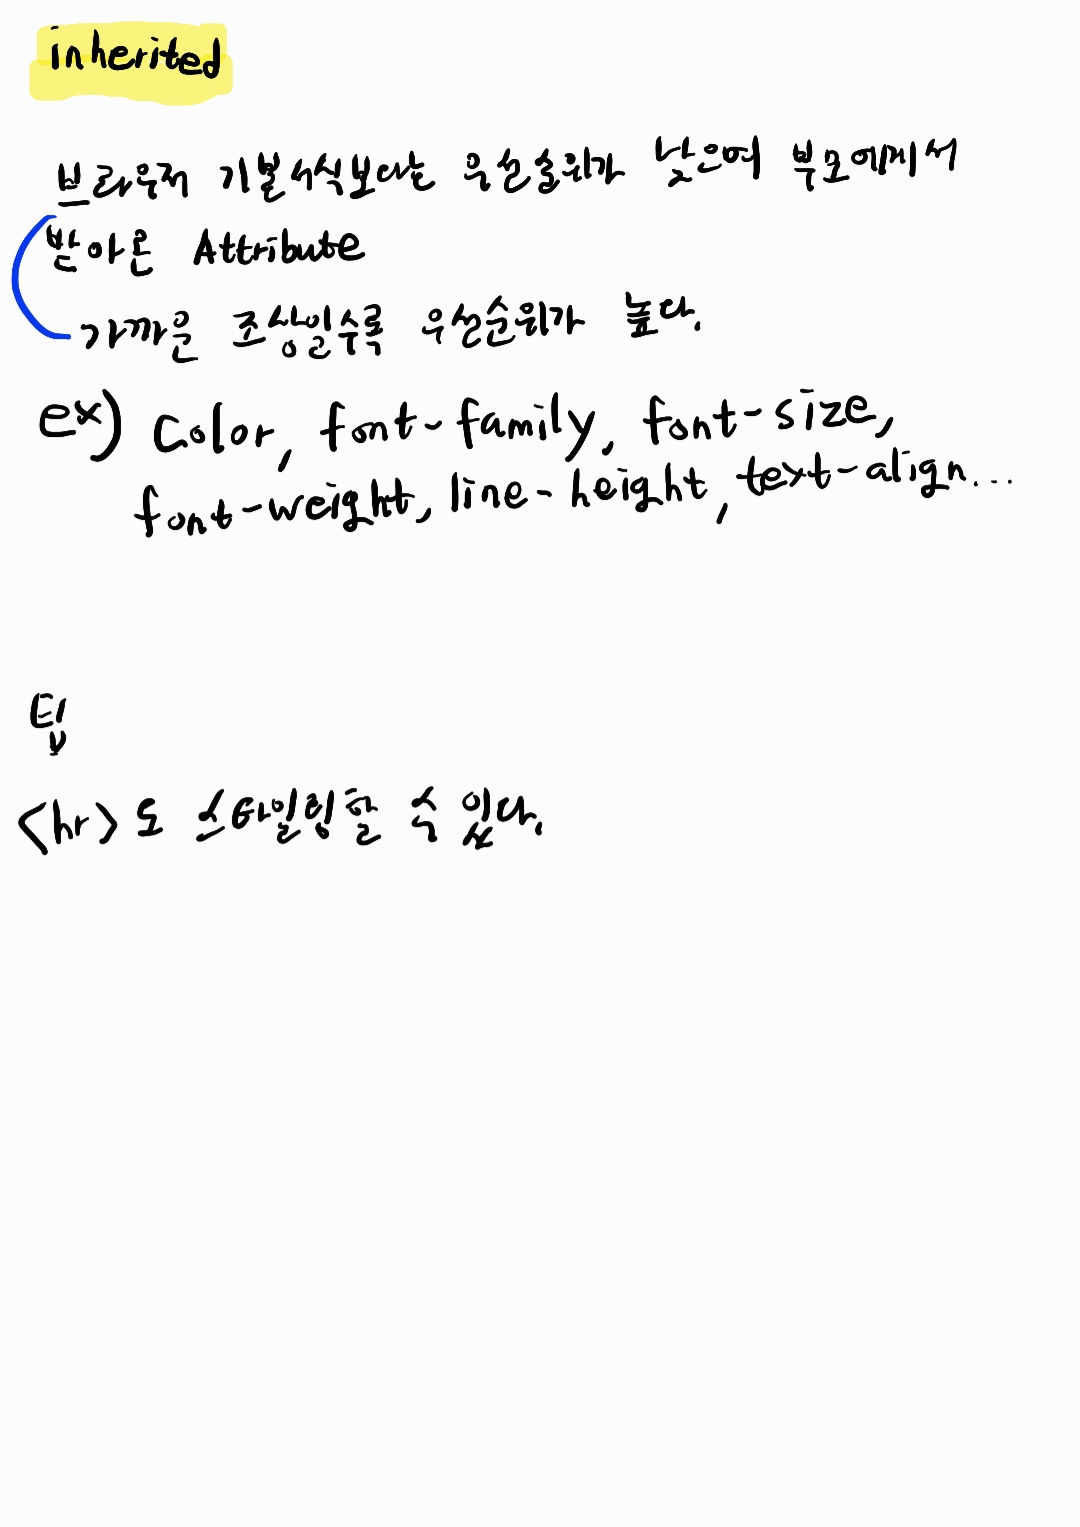 inherited
브라우저 기본서식보다는 우선순위가 낮으며 부모에서
받아온 Attribute
가까운 조상일수록 우선순위가 높다.
ex) Color, font-family, font-size,
font-weight, line-height, text-align...
팁
<hr>도 스타일링할 수 있다.